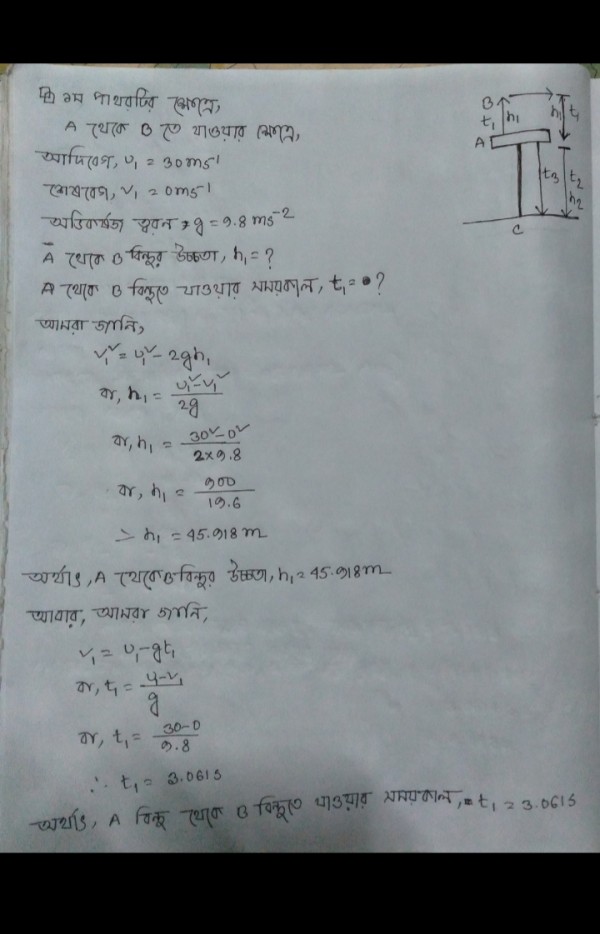 ১ম পাথরটির ক্ষেত্রে,
A থেকে B তে যাওয়ার ক্ষেত্রে,
আদিবেগ, u₁ = 30ms⁻¹
শেষবেগ, v₁ = 0ms⁻¹
অভিকর্ষজ ত্বরন, g = 9.8 ms⁻²
A থেকে B বিন্দুর উচ্চতা, h₁ = ?
A থেকে B বিন্দুতে যাওয়ার সময়কাল, t₁ = ?
আমরা জানি,
v₁² = u₁² - 2gh₁
বা, h₁ = (u₁² - v₁²) / 2g
বা, h₁ = (30² - 0²) / (2×9.8)
বা, h₁ = 900 / 19.6
∴ h₁ = 45.918 m
অর্থাৎ, A থেকে B বিন্দুর উচ্চতা, h₁ = 45.918m
আবার, আমরা জানি,
v₁ = u₁ - gt₁
বা, t₁ = (u - v₁) / g
বা, t₁ = (30-0) / 9.8
∴ t₁ = 3.061s
অর্থাৎ, A বিন্দু থেকে B বিন্দুতে যাওয়ার সময়কাল, t₁ = 3.061s
B
t₁ h₁ h₁ t₁
A
t₃ t₂
h₂
C